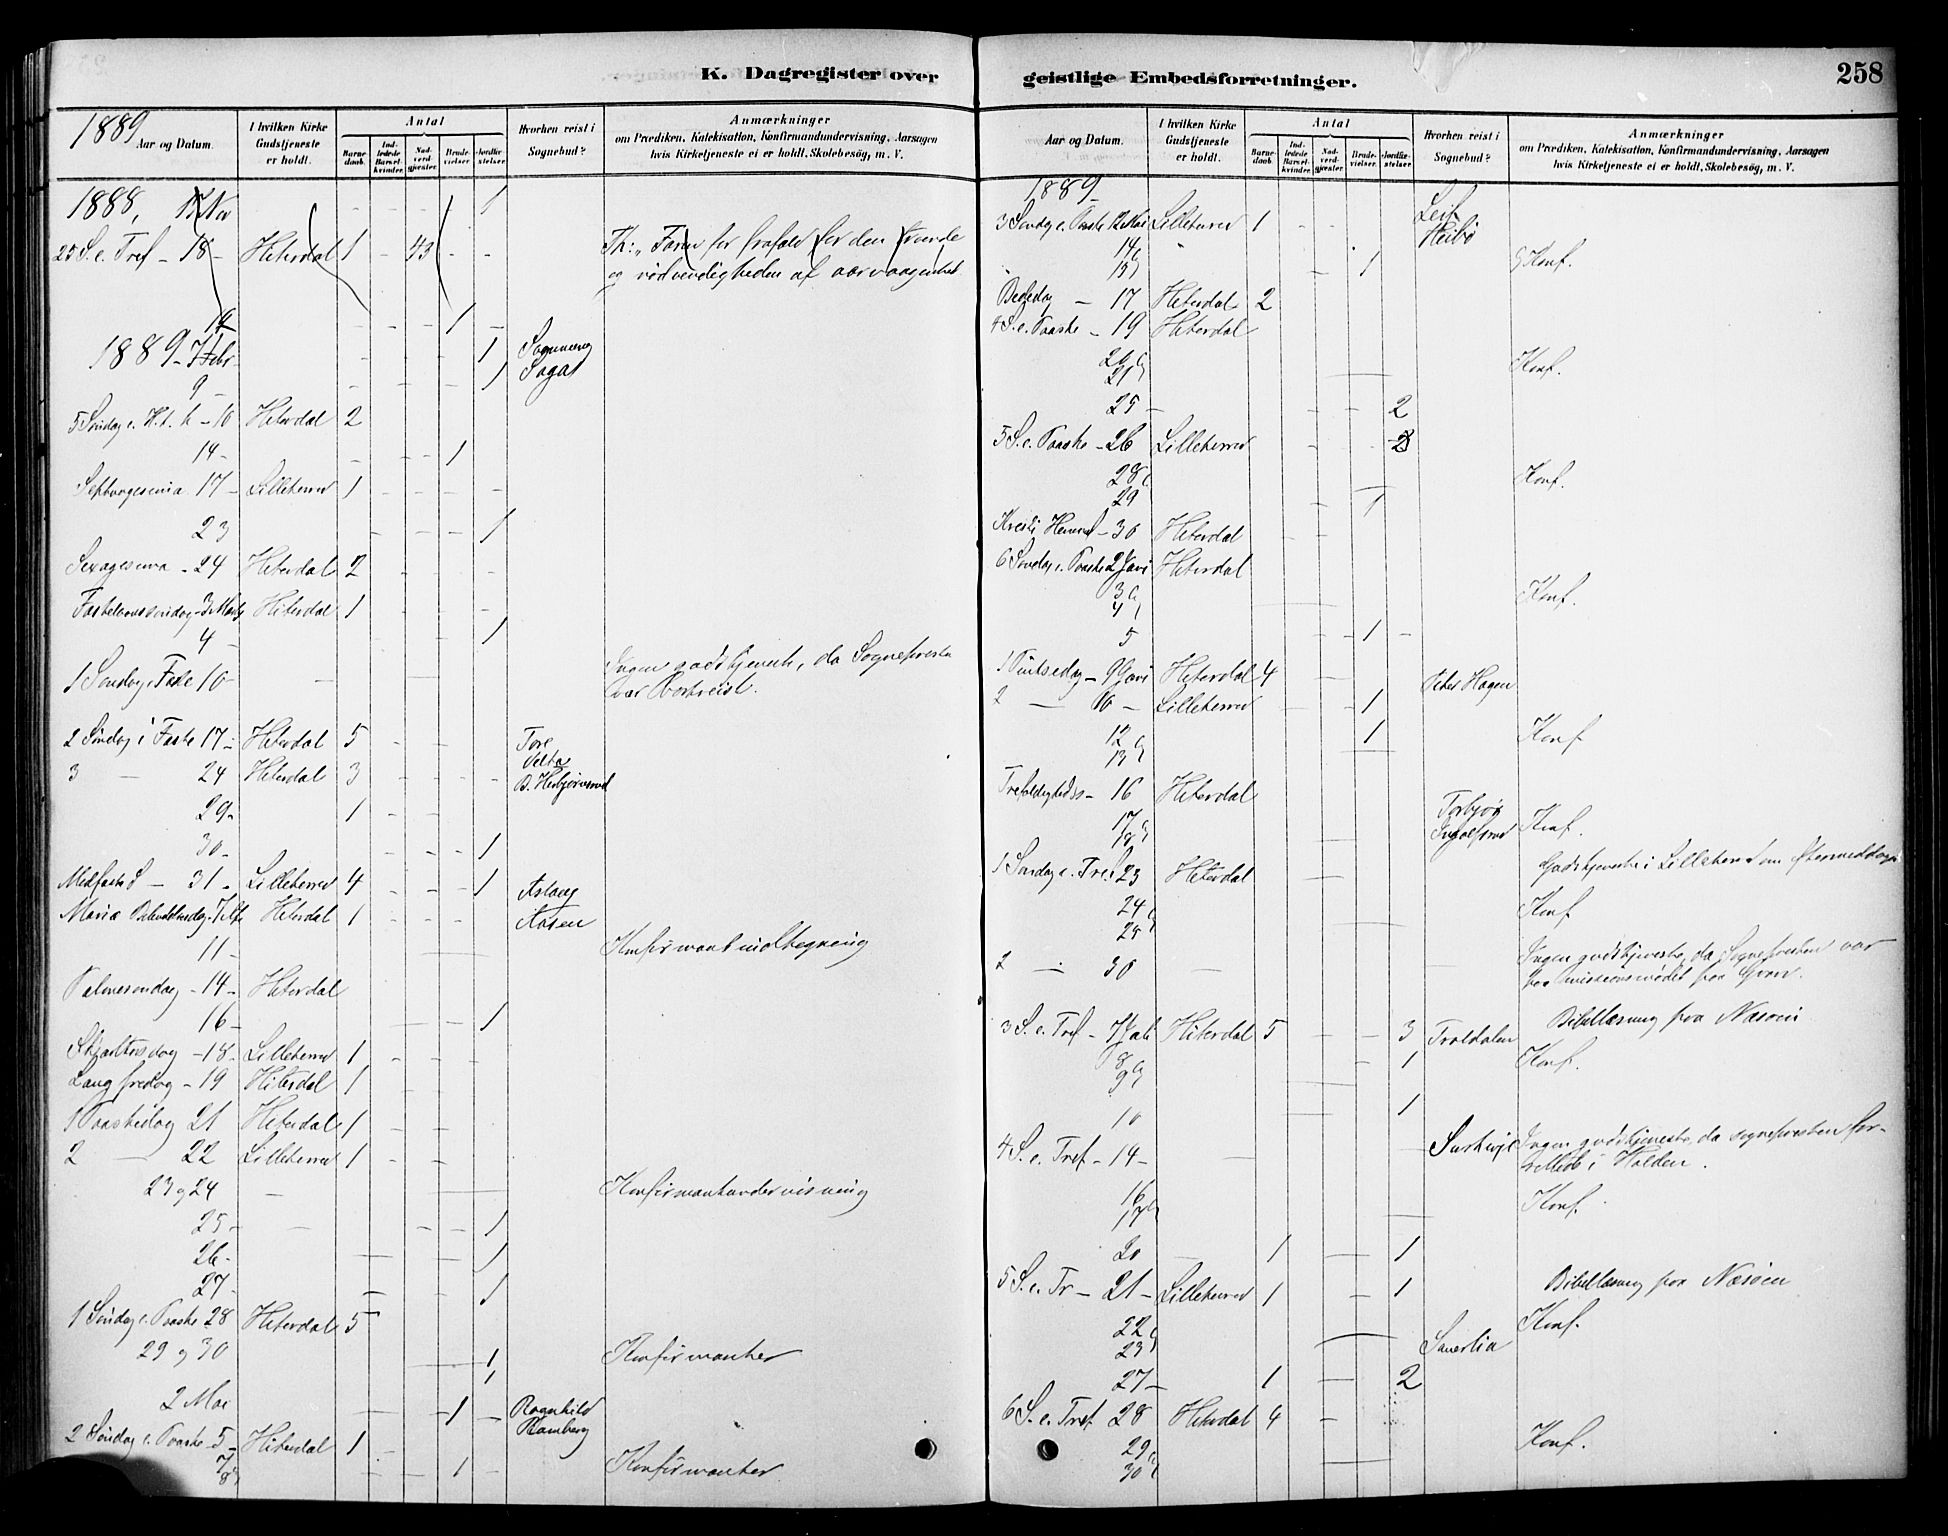 K. Dagregister over
1889
Aar og Datum.
I hvilken Kirke Gudstjeneste er holdt.
Antal
Barnedaab.
Indledede Barselkvinder.
Nadverdgjester.
Brudevielser.
Jordfæstelser.
Hvorhen reist i Sognebud?
Anmærkninger
om Prædiken, Katekisation, Konfirmandundervisning, Aarsagen
hvis Kirketjeneste ei er holdt, Skolebesøg, m. V.
1888, 17 Nov - 1
25 S. e. Tref - 18 - Hiterdal 1 - 43 - - Th: „Faren for frafald for den troende
og nødvendigheden af aarvaagenhed
19 - - - 1 -
1889 - 7 Febr - - - 1
9 - - - - 1
5 Søndag e. H. t. k - 10 Hiterdal 2
14 - - - - 1
Septuagesima 17 - Lilleherred 1 - - - -
23 - - - - 1
Sexagesima - 24 Hiterdal 2 - -
Fastelavnssøndag - 3 Marts Hiterdal 1 - - - -
4 - - - - 1
1 Søndag i Faste 10 - - Ingen gudstjeneste, da Sognepresten
var bortreist.
2 Søndag i Faste 17 - Hiterdal 5 - - - Tore
3 — 24 Hiterdal 3 - - - -
29 - 1
30 - - - - 1
Midfaste S — 31 - Lilleherred 4 - - - 1 Aslaug
Maria Bebudelsesdag - 7 Hiterdal 1 - - - Aasen
11 - - - - Konfirmantindtegning
Palmesøndag - 14 - Hiterdal
16 - - - - 1
Skjærtorsdag - 18 - Lilleherred 1 - - -
Langfredag - 19 Hiterdal 1 - - -
1 Paaskedag 21 Hiterdal 1 - -
2 — 22 Lilleherred 1 - -
23 og 24 - Konfirmantundervisning
25 - - 1
26 - — 1
27 - - - 1
1 Søndag e. Paaske 28 Hiterdal 5
29 og 30 1 Konfirmanter
1
2 Mai 1 - Ragnhild
Ramberg
2 Søndag e. Paaske - 5 - Hiterdal 1 -
7 og 8 - - 1 - Konfirmanter
geistlige Embedsforretninger.
258
Aar og Datum.
I hvilken Kirke Gudstjeneste er holdt.
Antal
Barnedaab.
Indledede Barselkvinder.
Nadverdgjester.
Brudevielser.
Jordfæstelser.
Hvorhen reist i Sognebud?
Anmærkninger
om Prædiken, Katekisation, Konfirmandundervisning, Aarsagen
hvis Kirketjeneste ei er holdt, Skolebesøg, m. V.
1889
3 Søndag e. Paaske 12 Mai Lilleherred 1 - - - Leif
Heibø
14 og 15 - 1 Konf.
Bededag — 17 Hiterdal 2
4 S. e. Paaske - 19 Hiterdal
20 og 21 Konf.
25 - - - - 2
5 S. e. Paaske - 26 Lilleherred - - - 2
28 og 29 - - 1 Konf.
Kristi Himmel - 30 Hiterdal
6 Søndag e. Paaske 2 Juni Hiterdal
3 og 4 Konf.
5 - - 1 -
1 Pintsedag - 9 Juni Hiterdal 4 Peter Hagen
2 — 10 - Lilleherred - - 1
12 og 13 1 Konf
Trefoldigheds - 16 Hiterdal
17 og 18 Torbjør
Konf.
1 Søndag e. Tref 23 Hiterdal Gudstjeneste i Lilleherred om eftermiddagen
24 og 25 Konf
2 — 30 - Ingen gudstjeneste, da Sognepresten var
paa missionsmødet paa Gran.
3 S. e. Tref - 7 Juli Hiterdal 5 - - - 3 Traldalen Bibellæsning paa Næsøen
8 og 9 1 Konf.
10 1
4 S. e. Tref - 14 - - Ingen gudstjeneste, da sognepresten for-
rettede i Holden.
16 og 17 Konf.
20 - 1 - 1
5 S. e. Tr - 21 - Lilleherred 1 - - 1 Bibellæsning paa Næsøen
22 og 23 Konf.
27 - 1 - 2
6 S. e. Tref. 28 Hiterdal 4 -
29 og 30 Konf.